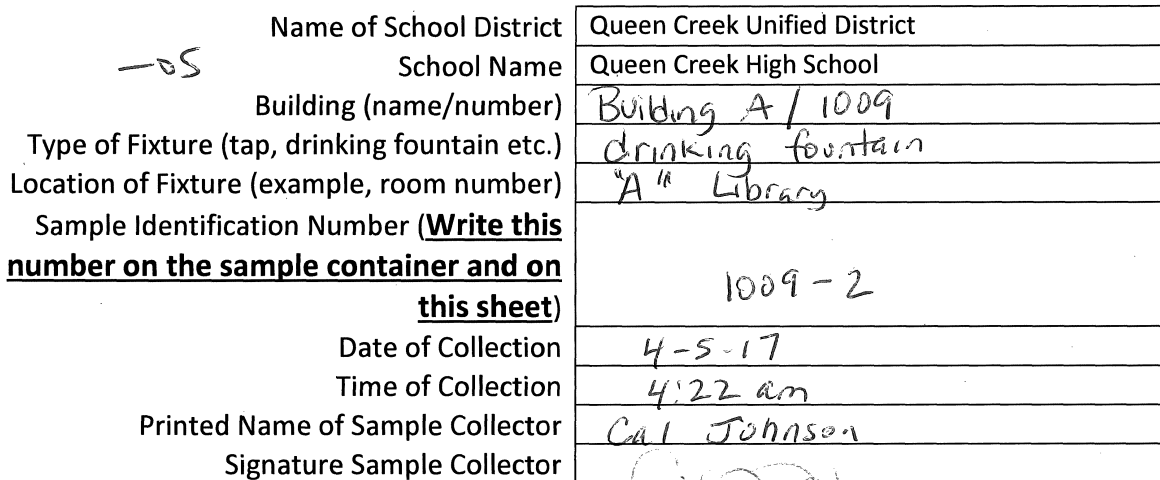 Name of School District Queen Creek Unified District
-05 School Name Queen Creek High School
Building (name/number) Building A / 1009
Type of Fixture (tap, drinking fountain etc.) drinking fountain
Location of Fixture (example, room number) "A" Library
Sample Identification Number (Write this
number on the sample container and on
this sheet) 1009-2
Date of Collection 4-5-17
Time of Collection 4:22 am
Printed Name of Sample Collector Cal Johnson
Signature Sample Collector